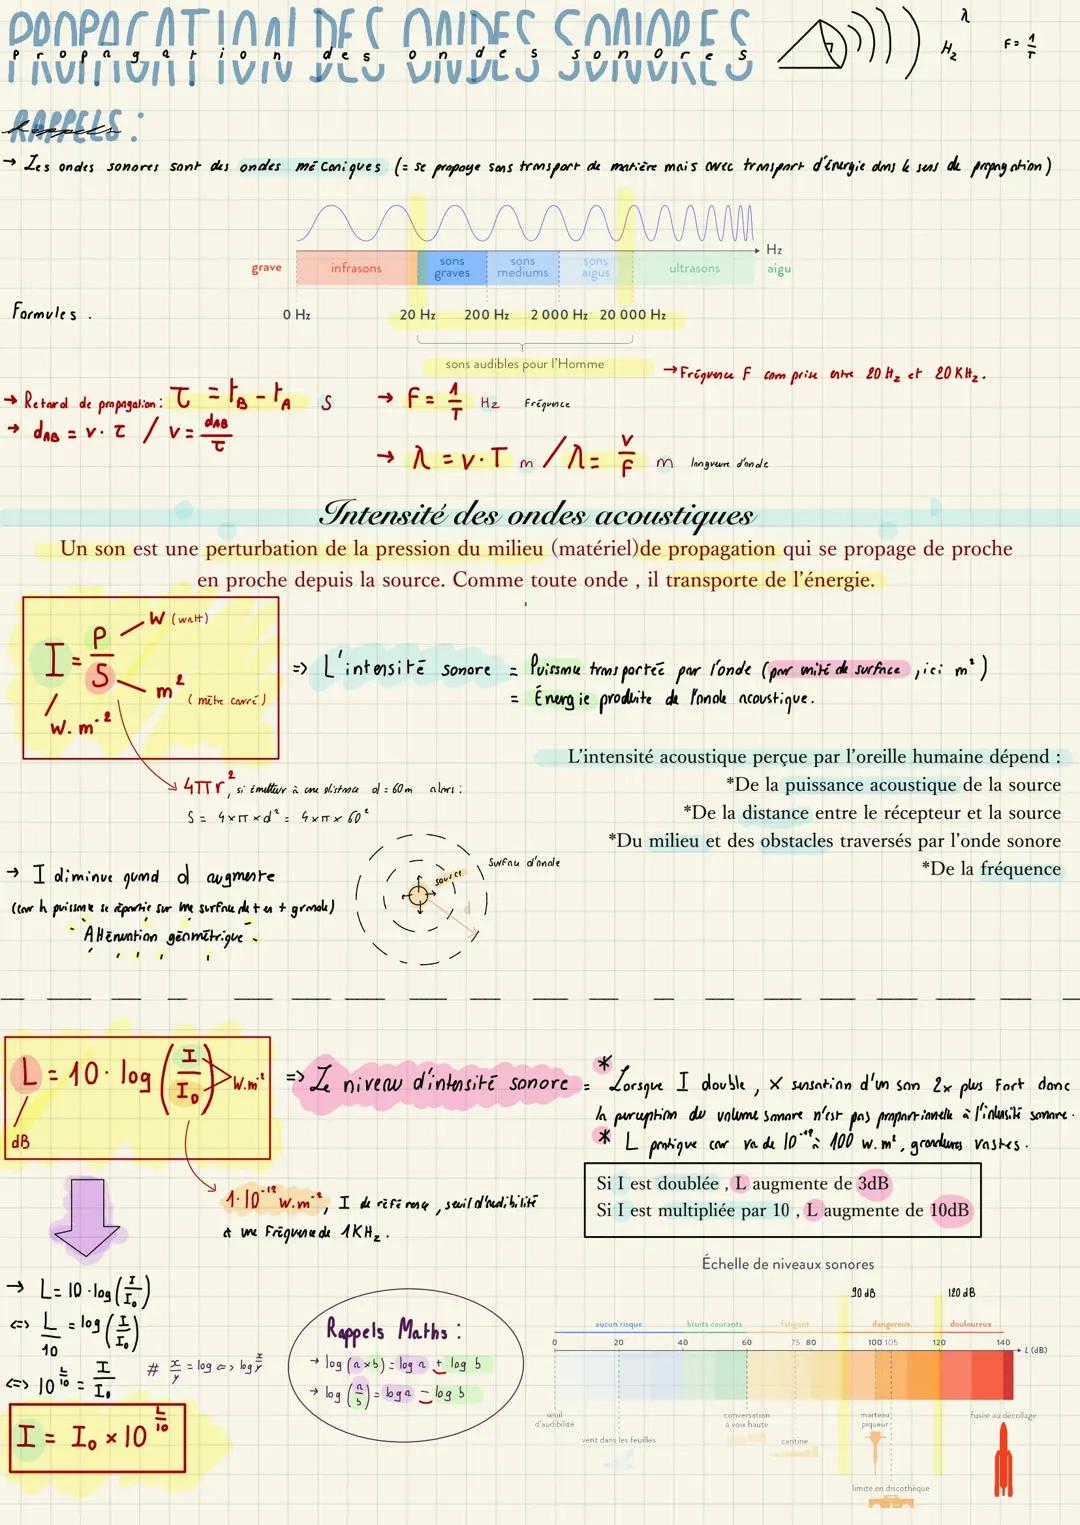 PROPAGATION DES ONDES SONORES
Propagation des ondes sonores
λ
Hz
F = 1/T
RAPPELS :
Rappels
→ Les ondes sonores sont des ondes mécaniques (= se propage sans transport de matière mais avec transport d'énergie dans le sens de propagation)
Hz
grave infrasons sons graves sons mediums sons aigus ultrasons aigu
Formules .
0 Hz 20 Hz 200 Hz 2 000 Hz 20 000 Hz
sons audibles pour l'Homme
→ Fréquence F comprise entre 20 Hz et 20 KHz.
→ Retard de propagation : τ = tB - tA s
→ F = 1/T Hz Fréquence
→ dAB = v · τ / v = dAB/τ
→ λ = v · T m / λ = v/F m longueure d'onde
Intensité des ondes acoustiques
Un son est une perturbation de la pression du milieu (matériel)de propagation qui se propage de proche
en proche depuis la source. Comme toute onde , il transporte de l'énergie.
I = P/S
W (watt)
m² (mètre carré)
W. m⁻²
=> L'intensité sonore = Puissance transportée par l'onde (par unité de surface , ici m²)
= Énergie produite de l'onde acoustique.
4πr², si émetteur à une distance d = 60m alors :
S = 4×π×d² = 4×π×60²
L'intensité acoustique perçue par l'oreille humaine dépend :
*De la puissance acoustique de la source
*De la distance entre le récepteur et la source
*Du milieu et des obstacles traversés par l'onde sonore
*De la fréquence
→ I diminue quand d augmente
(car la puissance se répartie sur une surface de + en + grande)
Atténuation géométrique
Surface d'onde
source
d
L = 10 · log (I/I₀)
W.m⁻²
dB
=> Le niveau d'intensité sonore =
* Lorsque I double , × sensation d'un son 2x plus fort donc
la perception du volume sonore n'est pas proportionnelle à l'intensité sonore.
* L pratique car va de 10⁻¹² à 100 w.m², grandeures vastes.
1·10⁻¹² W.m⁻², I de référence , seuil d'audibilité
à une fréquence de 1KHz.
Si I est doublée , L augmente de 3dB
Si I est multipliée par 10 , L augmente de 10dB
→ L = 10 · log (I/I₀)
<=> L/10 = log (I/I₀)
<=> 10^(L/10) = I/I₀
# x/y = log <=> log x/y
I = I₀ × 10^(L/10)
Rappels Maths :
→ log (a×b) = log a + log b
→ log (a/b) = log a - log b
Échelle de niveaux sonores
90 dB 120 dB
aucun risque bruits courants fatigant dangereux douloureux
0 20 40 60 75 80 100 105 120 140 L (dB)
seuil d'audibilité
vent dans les feuilles
conversation à voix haute
cantine
marteau piqueur
limite en discothèque
fusée au décollage